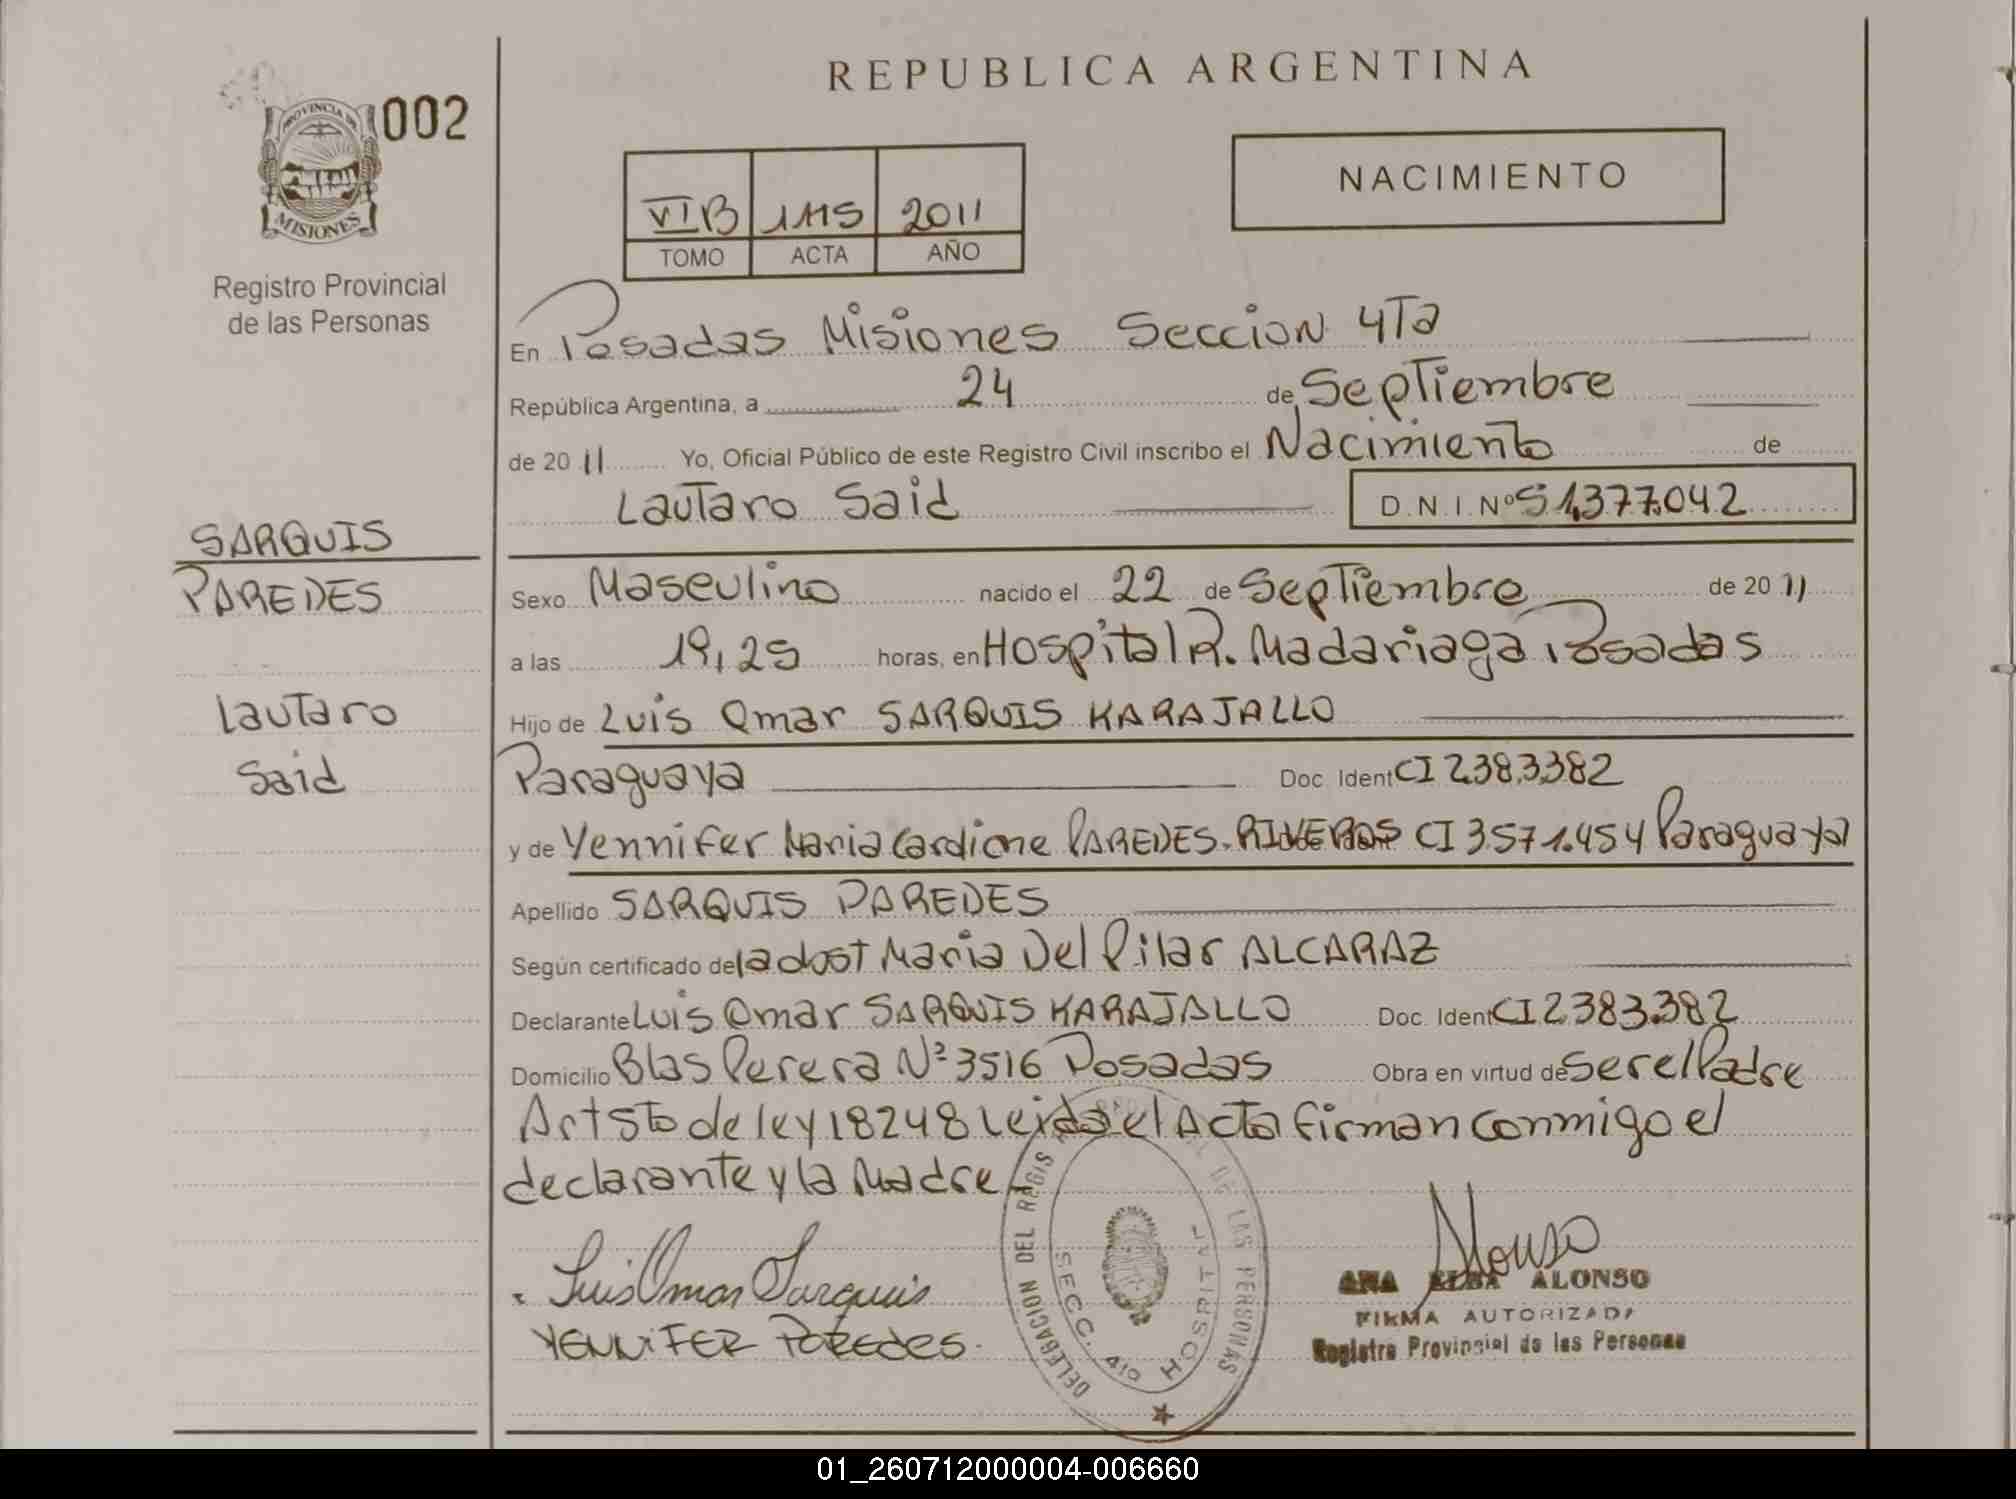 REPUBLICA ARGENTINA
PROVINCIA DE
MISIONES
002
Registro Provincial
de las Personas
VI B 1115 2011
TOMO ACTA AÑO
NACIMIENTO
En Posadas Misiones Seccion 4Ta
República Argentina, a 24 de Septiembre
de 2011 Yo, Oficial Público de este Registro Civil inscribo el Nacimiento de
Lautaro Said D.N.I. Nº 51.377.042
SARQUIS
PAREDES
Lautaro
Said
Sexo Masculino nacido el 22 de Septiembre de 2011
a las 19,25 horas, en Hospital R. Madariaga Posadas
Hijo de Luis Omar SARQUIS KARAJALLO
Paraguaya Doc. Ident CI 2.383.382
y de Yennifer Maria Cardione PAREDES. RIVEROS CI 3.571.454 Paraguaya
Apellido SARQUIS PAREDES
Según certificado de la obst Maria Del Pilar ALCARAZ
Declarante Luis Omar SARQUIS KARAJALLO Doc. Ident CI 2.383.382
Domicilio Blas Perera Nº 3516 Posadas Obra en virtud de Ser el Padre
Art 5to de ley 18248 Leida el Acta firman conmigo el
declarante y la Madre
Luis Omar Sarquis
YENNIFER PAREdes.
DELEGACION DEL REGIS DE LAS PERSONAS
SECC. 4ta HOSPITAL
Alonso
ANA ELBA ALONSO
FIRMA AUTORIZADA
Registro Provincial de las Personas
01_260712000004-006660